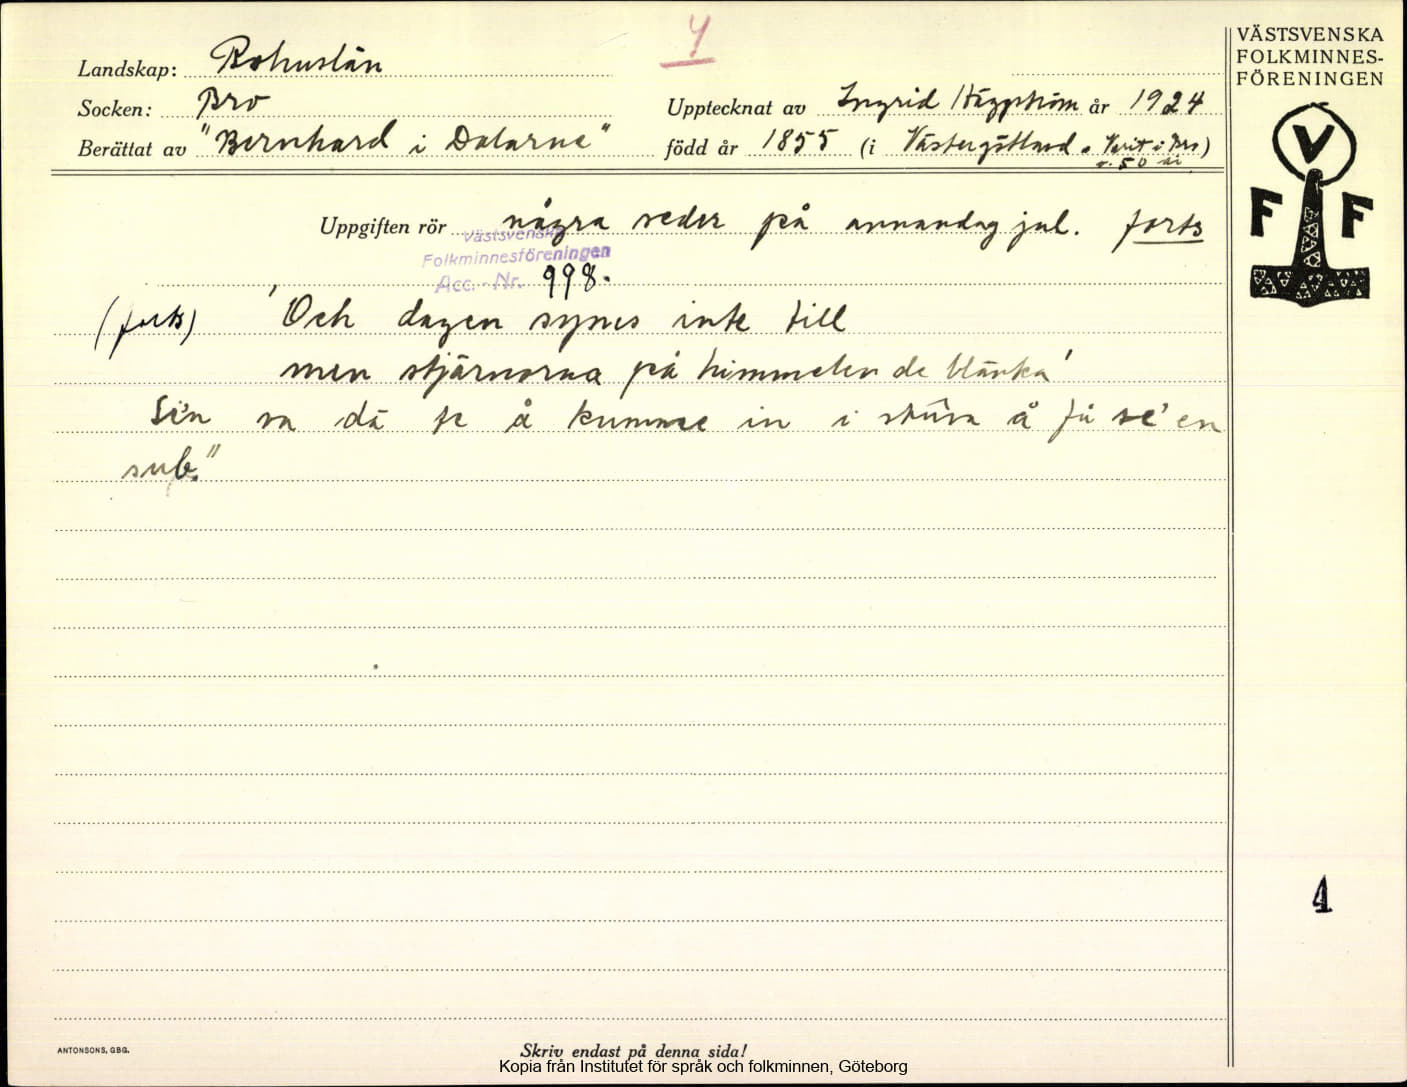 4
Landskap: Bohuslän
Socken: Bro
Upptecknat av Ingrid Häggström år 1924
Berättat av "Bernhard i Dalarne" född år 1855 (i Västergötland. Varit i Bro)
c. 50 år
VÄSTSVENSKA
FOLKMINNES-
FÖRENINGEN
V
F F
Uppgiften rör några seder på annandag jul. forts
Västsvenska
Folkminnesföreningen
Acc.-Nr. 998.
(forts) 'Och dagen synes inte till
men stjärnorna på himmelen de blänka'
Se'n va dä te å kumme in i stûva å få se' en
sup."
4
ANTONSONS, GBG.
Skriv endast på denna sida!
Kopia från Institutet för språk och folkminnen, Göteborg